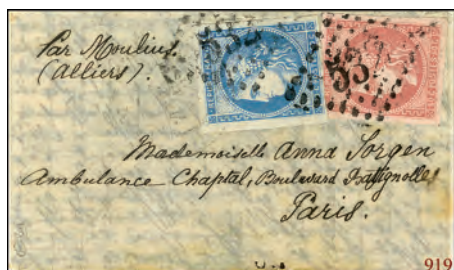 Par Moulins.
(Alliers).
Mademoiselle Anna Sorgen
Ambulance Chaptal, Boulevard Batignolles
Paris.
919